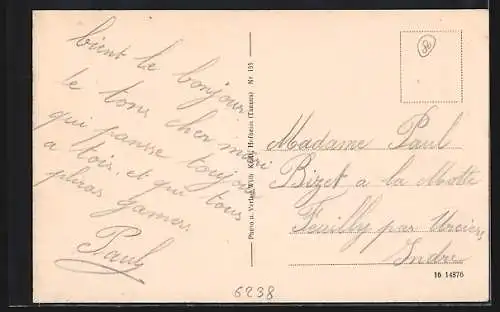 bient le bonjour
de tons cher mari
qui pansse toujour
a tois. et qui tous
pliras gamer
Paul
Photo u. Verlag Wilh. Hofheim (Taunus) Nr 105
Madame Paul
Bizet a la Motte
Feuilly par Urciers
Indre
16 14876
6238